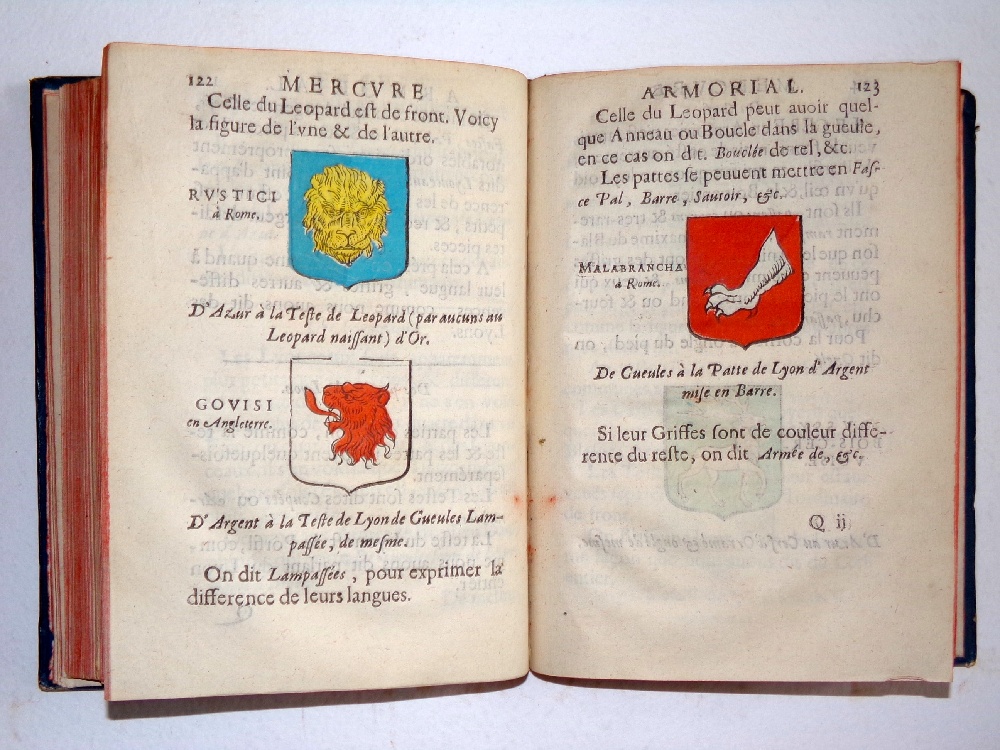 122 MERCVRE
Celle du Leopard est de front. Voicy
la figure de l'vne & de l'autre.
RVSTICI
à Rome.
D'Azur à la Teste de Leopard (par aucuns au
Leopard naissant) d'Or.
GOVISI
en Angleterre.
D'Argent à la Teste de Lyon de Gueules Lam-
passée, de mesme.
On dit Lampassées, pour exprimer la
difference de leurs langues.
ARMORIAL. 123
Celle du Leopard peut auoir quel-
que Anneau ou Boucle dans la gueule,
en ce cas on dit. Bouclée de tel, &c.
Les pattes se peuuent mettre en Fas-
ce Pal, Barre, Sautoir, &c.
MALABRANCHA
à Rome.
De Gueules à la Patte de Lyon d'Argent
mise en Barre.
Si leur Griffes sont de couleur diffe-
rente du reste, on dit Armée de, &c.
Q ij